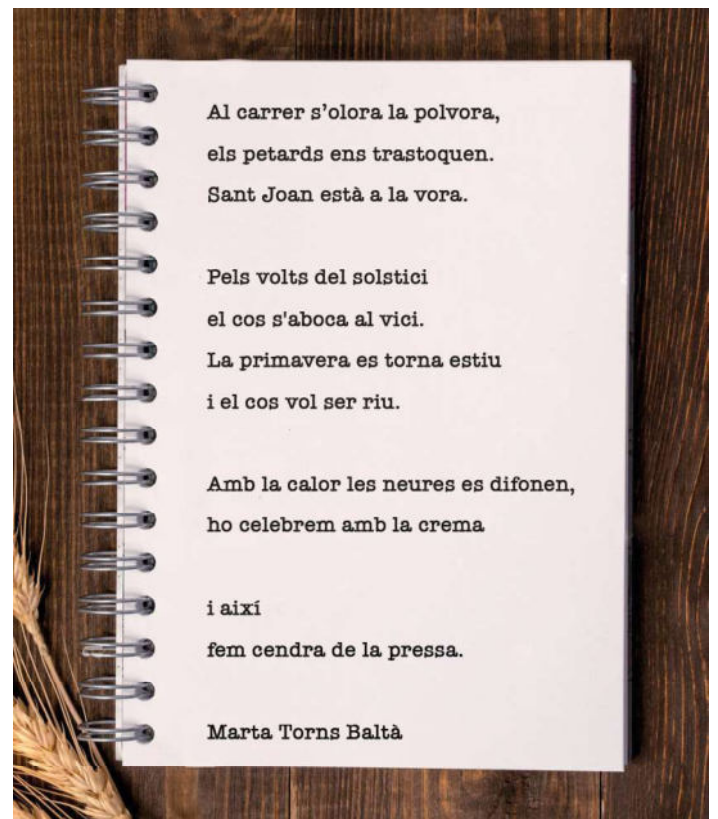 Al carrer s’olora la polvora,
els petards ens trastoquen.
Sant Joan està a la vora.
Pels volts del solstici
el cos s'aboca al vici.
La primavera es torna estiu
i el cos vol ser riu.
Amb la calor les neures es difonen,
ho celebrem amb la crema
i així
fem cendra de la pressa.
Marta Torns Baltà